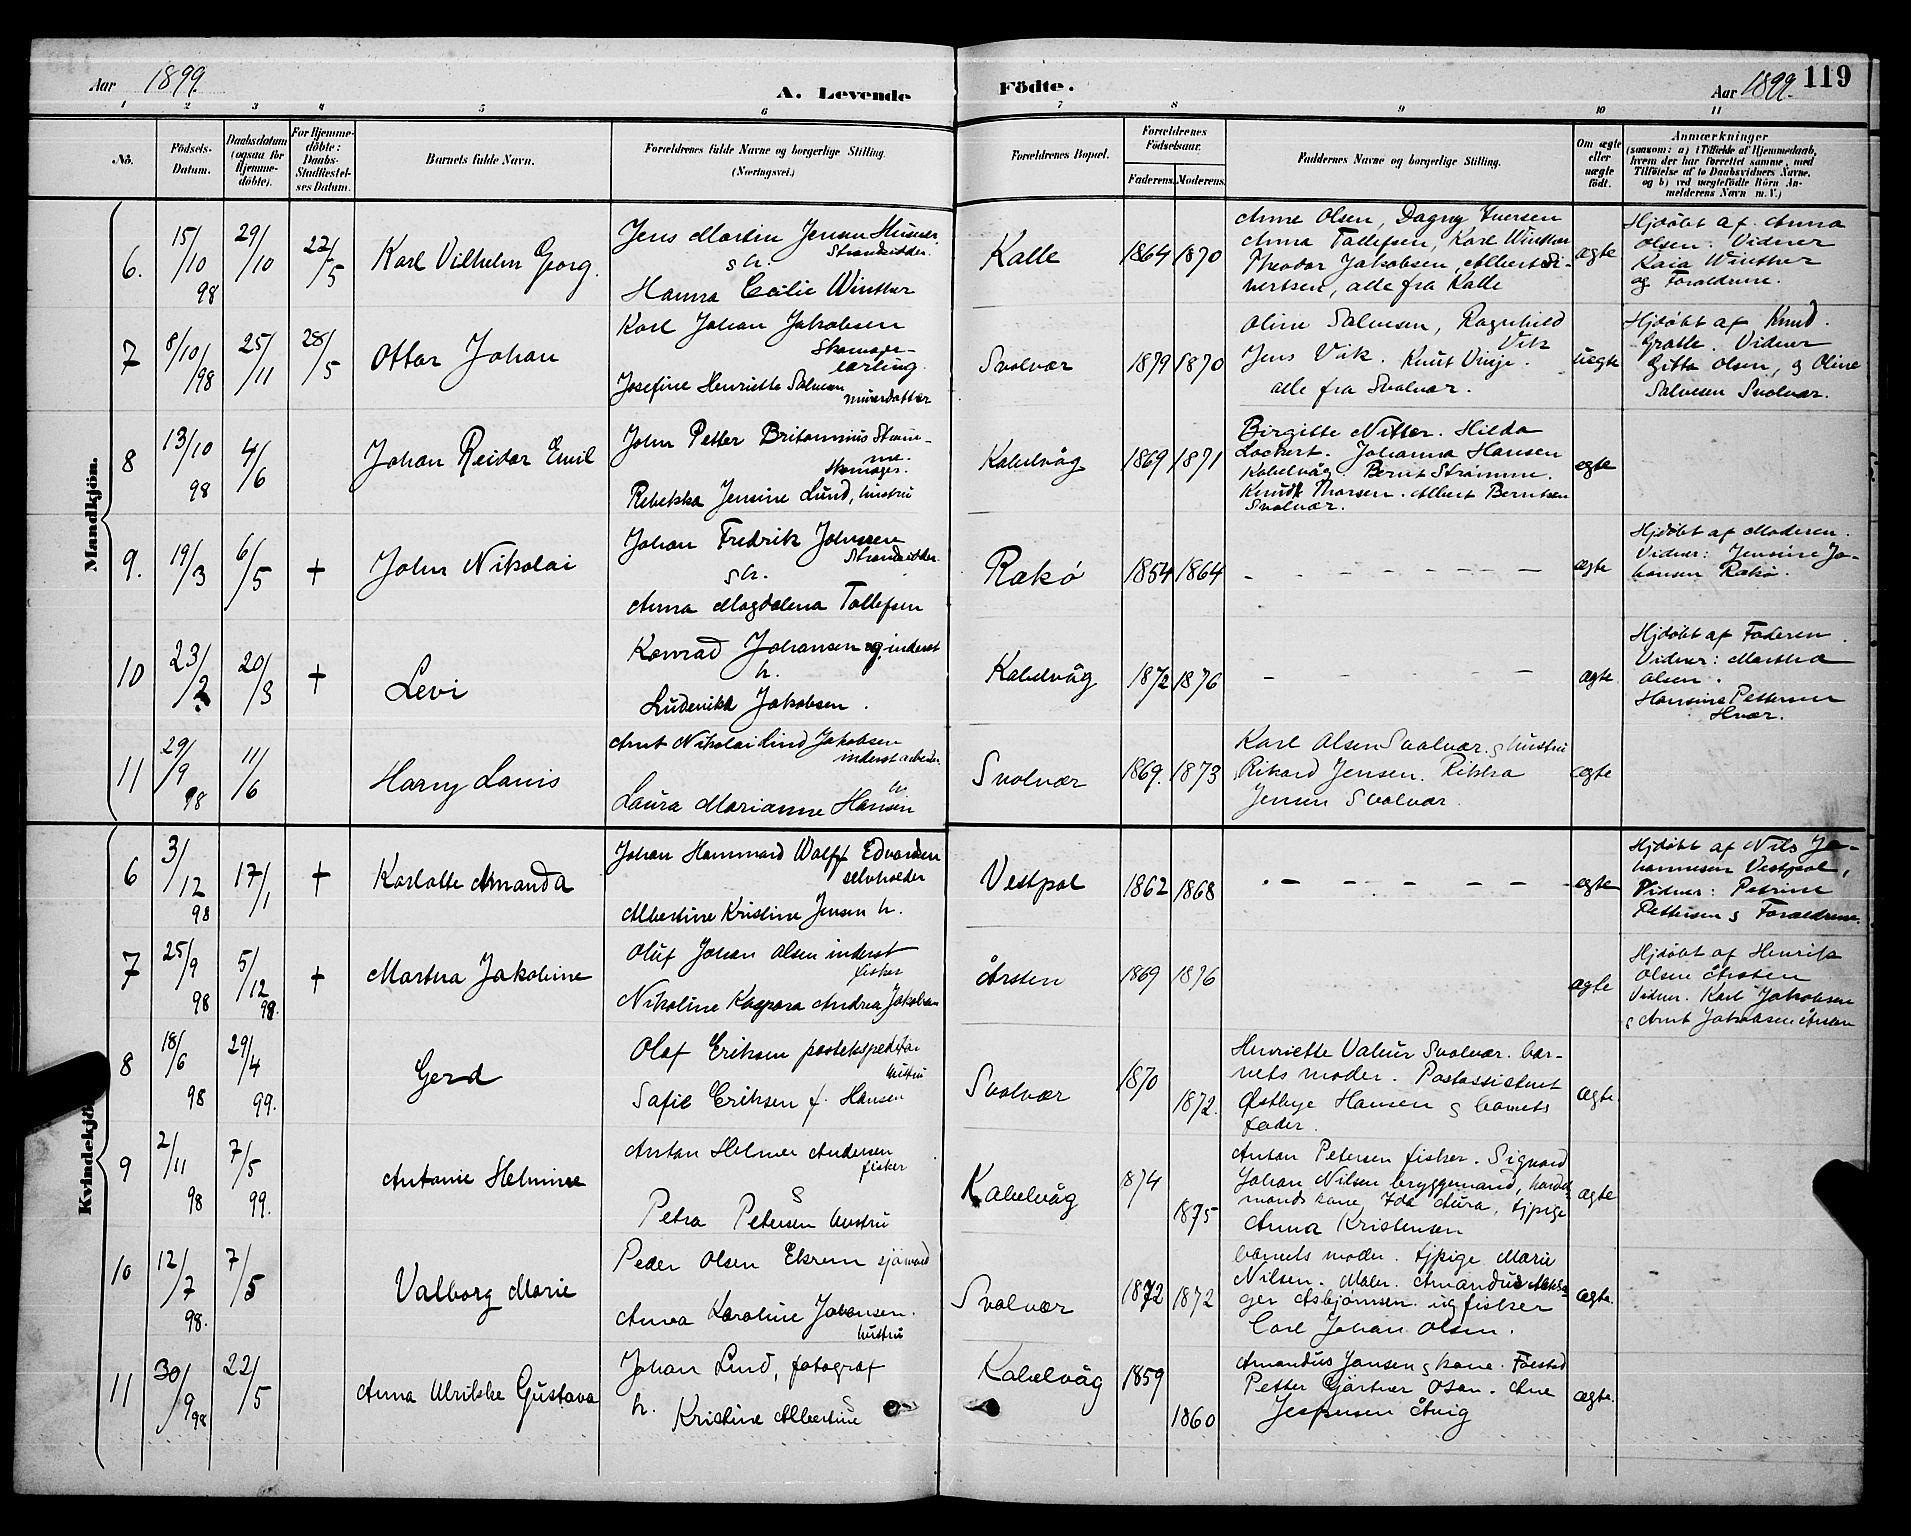 Aar 1899.
A. Levende
Födte.
Aar 1899.
119
1 2 3 4 5 6 7 8 9 10 11
No.
Födsels-
Datum.
Daabsdatum
(ogsaa for
Hjemme-
döbte).
For Hjemme-
döbte:
Daabs-
Stadfæstel-
ses Datum.
Barnets fulde Navn.
Forældrenes fulde Navne og borgerlige Stilling.
(Næringsvei.)
Forældrenes Bopæl.
Forældrenes
Födselsaar.
Faderens. Moderens.
Faddernes Navne og borgerlige Stilling.
Om ægte
eller
uægte
født.
Anmærkninger
(saasom: a) i Tilfælde af Hjemmedaab,
hvem der har forrettet samme, med
Tilföielse af to Daabsvidners Navne,
og b) ved uægtefödte Börn An-
melderens Navn m. V.)
Mandkjön.
6. 15/10 98 29/10 27/5 Karl Vilhelm Georg.
Jens Martin Jensen
Strandsidder
s h.
Hanna Cecilie Winther
Kalle 1864 1870
Anne Olsen, Dagny Iversen
Anna Tollefsen, Karl Winther
Theodor Jakobsen, Albert Si-
vertsen, alle fra Kalle
ægte
Hjdöbt af Anna
Olsen. Vidner
Kaia Winther
og Forældrene.
7 8/10 98 25/11 28/5 Ottar Johan
Karl Johan Jakobsen
Skomager-
lærling.
Josefine Henriette Salvesen
Svolvær 1879 1870
Oline Salvesen, Ragnhild
Vik
Jens Vik. Knut Vinje.
alle fra Svolvær.
uægte
Hjdöbt af Knud
Gratte. Vidner
Gitta Olsen, og Oline
Salvesen Svolvær.
8 13/10 98 4/6 Johan Reidar Emil
John Petter Britannius Strøm-
me.
Skomager.
Rebekka Jensine Lund, hustru
Kabelvåg 1869 1871
Birgitte Nitter. Hilda
Lockert. Johanna Hansen
Kabelvåg Bernt Strømme.
Knud Thorsen. Albert Berntsen
Svolvær.
egte
9. 19/3 6/5 + John Nikolai
Johan Fredrik Johnsen
Strandsidder
s h.
Anna Magdalena Tollefsen
Rækø 1854 1864
- - - - - - -
ægte
Hjdöbt af Moderen.
Vidner: Jensine Jo-
hansen Rækø.
10 23/2 20/3 + Levi
Konrad Johansen inderst
h.
Ludevikka Jakobsen.
Kabelvåg 1872 1876
- - - - - - -
ægte
Hjdöbt af Faderen.
Vidner: Martha
Olsen.
Hansine Pettersen
Hvær.
11 29/9 98 11/6 Harry Lauis
Arnt Nikolai Lind Jakobsen
inderst arbeider
h.
Laura Marianne Hansen
Svolvær 1869. 1873
Karl Olsen Svolvær. & hustru
Rikard Jensen. Rikka
Jensen Svolvær.
ægte
Kvindekjön
6 3/12 98 17/1 + Karlotte Amanda
Johan Hammond Wolff Edvardsen
selveier
Albertine Kristine Jensen h.
Vestpol 1862 1868
- - - - - - -
egte
Hjdöbt af Nils Jo-
hannesen Vestpol,
Vidner: Petrine
Pettersen & Forældrene.
7 25/9 98 5/12 98. + Martha Jakobine
Oluf Johan Olsen inderst
fisker
Nikoline Kaspara Andrea Jakobsen
Årsten 1869 1876
ægte
Hjdöbt af Henrik
Olsen Årsten
Vidner. Karl Jakobsen
& Arnt Jakobsen Årsten
8 18/6 98 29/4 99. Gerd
Olaf Eriksen postekspeditør
hustru
Sofie Eriksen f. Hansen
Svolvær 1870 1872.
Henriette Valeur Svolvær. bar-
nets moder. Postassistent
Østbye Hansen & barnets
fader.
ægte.
9 2/11 98 7/5 99. Antonie Helmine
Anton Helmer Andersen
fisker
&
Petra Petersen hustru
Kabelvåg 1874 1875
Anton Petersen fisker. Sigvard
Johan Nilsen bryggemand, handel-
mands kone Ida Aura, tjpige
Anna Kristensen
ægte
10 12/7 98. 7/5 Valborg Marie
Peder Olsen Ekrem sjømand
Anna Karoline Johansen.
hustru
Svolvær 1872 1872
barnets moder. tjpige Marie
Nilsen. Maler Amandus
Asbjørnsen og fisker
Carl Johan Olsen.
ægte.
11 30/9 98 22/5 Anna Ulrikke Gustava
Johan Lind, fotograf
&
h. Kristine Albertine
Kabelvåg 1859 1860
Amandus Jansen & kone.
Petter Gjärtner Osan. Ane
Jespersen Årvig
ægte.